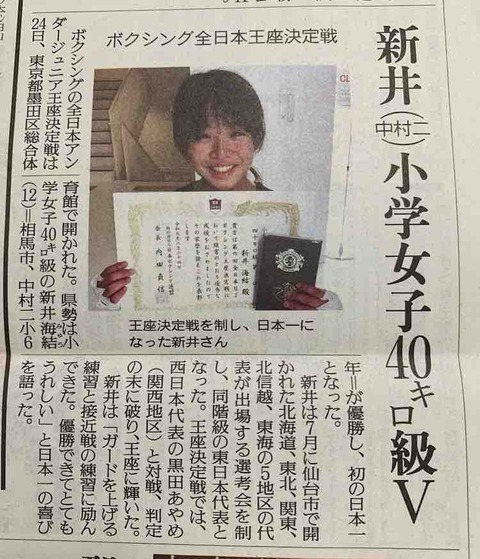 新井(中村二)小学女子40㌔級V
ボクシング全日本王座決定戦
新井海結殿
会長 内田貞信
王座決定戦を制し、日本一に
なった新井さん
ボクシングの全日本アン
ダージュニア王座決定戦は
24日、東京都墨田区総合体
育館で開かれた。県勢は小
学女子40㌔級の新井海結
(12)=相馬市、中村二小6
年=が優勝し、初の日本一
となった。
新井は7月に仙台市で開
かれた北海道、東北、関東、
北信越、東海の5地区の代
表が出場する選考会を制
し、同階級の東日本代表と
なった。王座決定戦では、
西日本代表の黒田あやめ
(関西地区)と対戦、判定
の末に破り、王座に輝いた。
新井は「ガードを上げる
練習と接近戦の練習に励ん
できた。優勝できてとても
うれしい」と日本一の喜び
を語った。